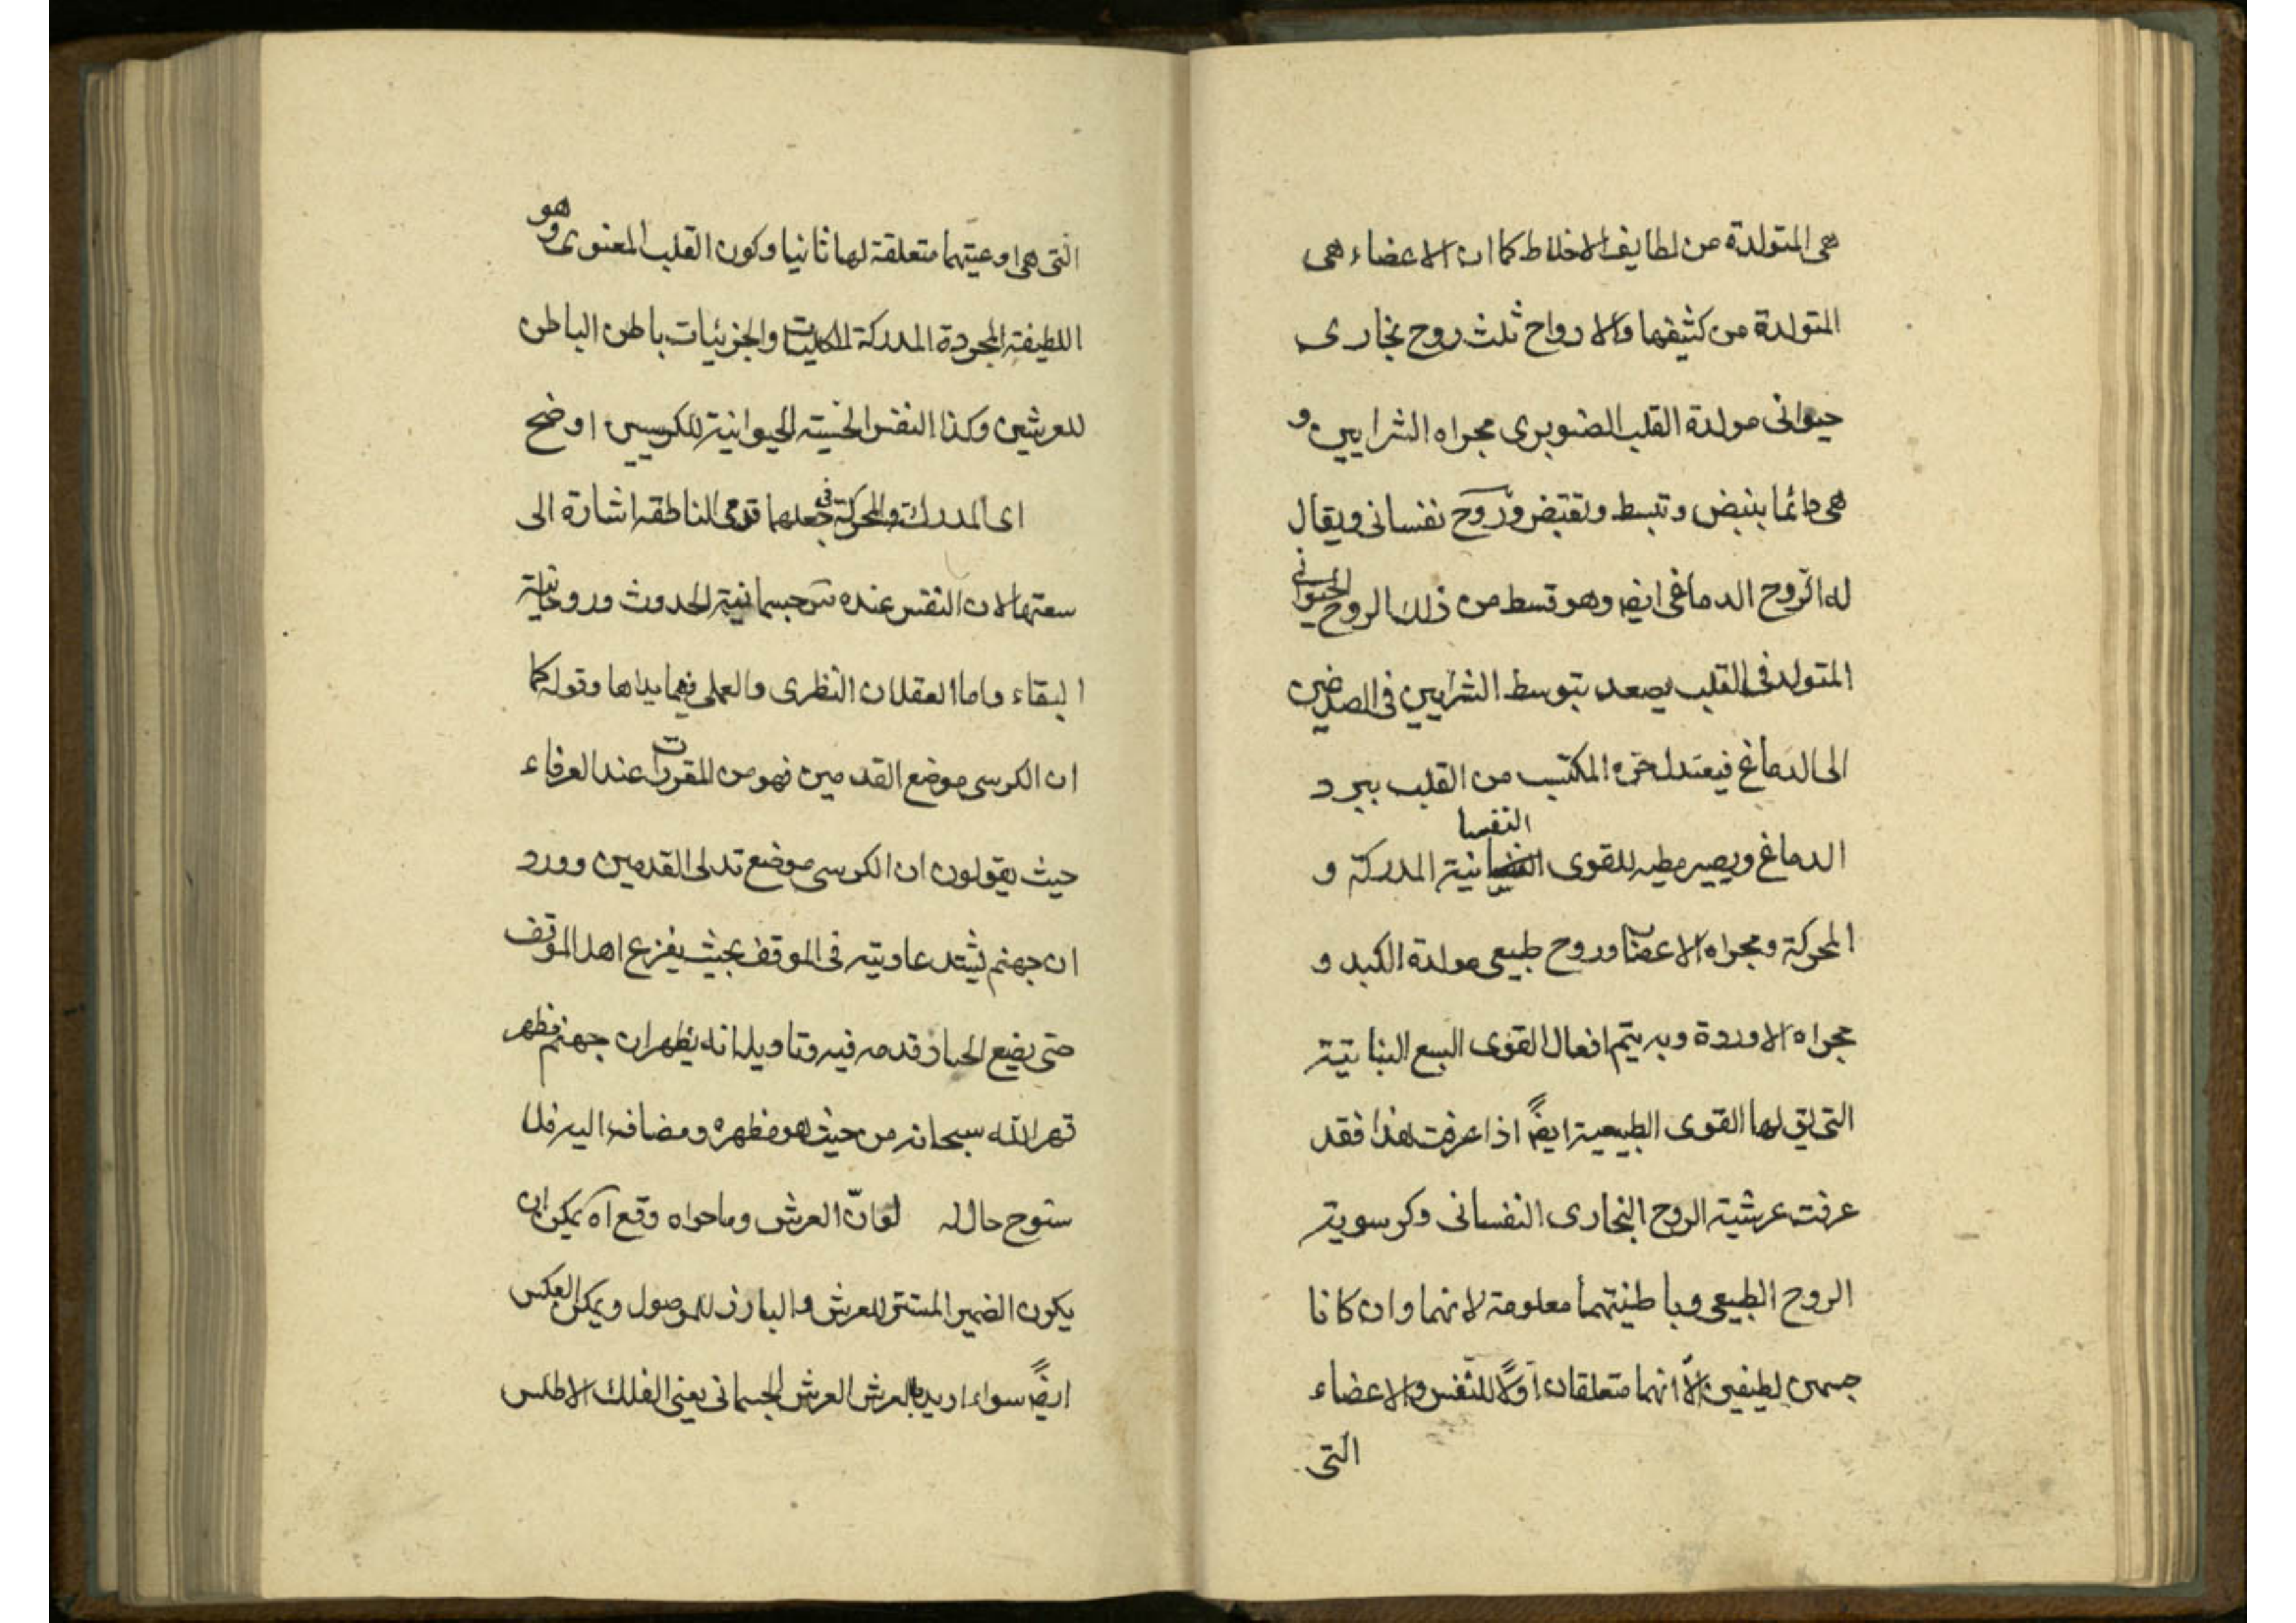 هى المتولدة من لطايف الاخلاط كما ان الاعضاء هى
المتولدة من كثيفها والارواح ثلث روح بخارى
حيوانى مولدة القلب الصنوبرى مجراه الشرايين و
هى دائما ينبض وتنبسط وتقبض وروح نفسانى ويقال
له الروح الدماغى ايض وهو قسط من ذلك الروح الحيوانى
المتولد فى القلب يصعد بتوسط الشرايين فى الصدغين
الى الدماغ فيعتدل حره المكتسب من القلب ببرد
الدماغ ويصير مطيه للقوى النفسانية المدركة و
المحركة ومجراه الاعصاب وروح طبيعى مولدة الكبد و
مجراه الاوردة وبه يتم افعال القوى السبع النباتية
التى يق لها القوى الطبيعية ايضً اذا عرفت هذا فقد
عرفت عرشية الروح البخارى النفسانى وكرسوية
الروح الطبيعى وباطنيتهما معلومة لانهما وان كانا
جسمين لطيفين الّا انهما متعلقان اوّلًا للنفس والاعضاء
التى
التى هى اوعيتهما متعلقة لها ثانيا وكون القلب المعنوى وهو
اللطيفة المجردة المدركة للكليات والجزئيات باطن الباطن
للعرشين وكذا النفس الحسية الحيوانية للكرسيين اوضح
اى المدركة والمحركة فى جعلهما قدمى الناطقه اشارة الى
سعتها لان النفس عنده س جسمانية الحدوث وروحانية
البقاء واما العقلان النظرى والعملى فهما يداها وقوله كما
ان الكرسى موضع القدمين فهو من المقررات عند العرفاء
حيث يقولون ان الكرسى موضع تدلى القدمين وورد
ان جهنم يشتد عاويته فى الموقف بحيث يفزع اهل الموقف
حتى يضع الجبار قدمه فيه وتاويله انه يظهر ان جهنم مظهر
قهر الله سبحانه من حيث هو مظهره ومضافه اليه فلا
ستوح حال له لو انّ العرش وما حواه وقع آه يمكن ان
يكون الضمير المستتر للعرش والبارز للموصول ويمكن العكس
ايضً سواء اريد بالعرش العرش الجسمانى يعنى الفلك الاطلس